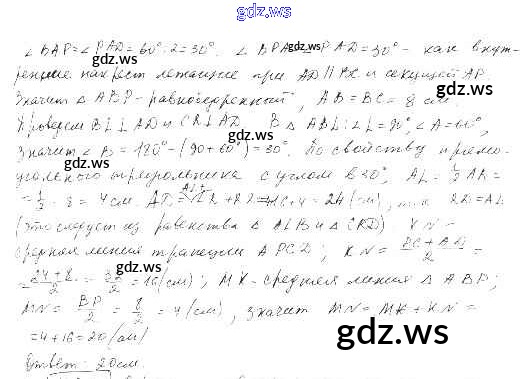 gdz.ws
∠BAP = ∠PAD = 60° : 2 = 30°. ∠BPA = ∠PAD = 30° - как внут-
gdz.ws
ренние накрест лежащие при AD ∥ BC и секущей AP.
Значит △ABP - равнобедренный, AB = BC = 8 см.
Проведем BL ⊥ AD и CR ⊥ AD. В △ABL: ∠L = 90°, ∠A = 60°,
значит ∠B = 180° - (90 + 60°) = 30°. По свойству прямо-
угольного треугольника с углом в 30°, AL = 1/2 AB =
= 1/2 · 8 = 4 см
gdz.ws
= 24 (см), т.к. RD = AL
(это следует из равенства △ALB и △CRD). KN -
средняя линия трапеции APCD; KN =
= 16 (см); MK - средняя линия △ABP;
= BP/2 = 8/2 = 4 (см), значит MN = MK + KN =
= 4 + 16 = 20 (см)
gdz.ws
Ответ: 20 см.
gdz.ws